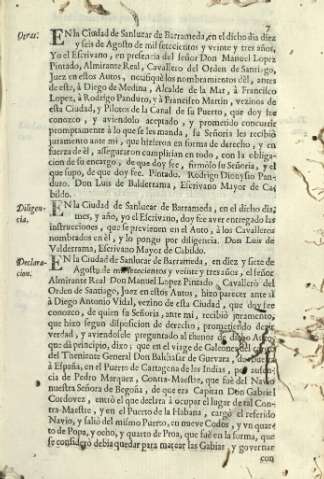 7
Otras.
EN la Ciudad de Sanlucar de Barrameda, en el dicho dia diez
y seis de Agosto de mil setecientos y veinte y tres años,
Yo el Escrivano, en presencia del señor Don Manuel Lopez
Pintado, Almirante Real, Cavallero del Orden de Santiago,
Juez en estos Autos, notifiquè los nombramientos de èl, antes
de esto, à Diego de Medina, Alcalde de la Mar, à Francisco
Lopez, à Rodrigo Panduro, y à Francisco Martin, vezinos de
esta Ciudad, y Pilotos de la Canal de su Puerto, que doy fee
conozco, y aviendolo aceptado, y prometido concurrir
promptamente à lo que se les manda, su Señoria les recibiò
juramento ante mi, que hizieron en forma de derecho, y en
fuerza de èl, asseguraron cumplirian en todo, con la obliga-
cion de su encargo, de que doy fee, firmòlo su Señoria, y el
que supo, de que doy fee. Pintado. Rodrigo Dionysio Pan-
duro. Don Luis de Balderrama, Escrivano Mayor de Ca-
bildo.
Diligen-
cia.
EN la Ciudad de Sanlucar de Barrameda, en el dicho dia,
mes, y año, yo el Escrivano, doy fee aver entregado las
instrucciones, que se previenen en el Auto, à los Cavalleros
nombrados en èl, y lo pongo por diligencia. Don Luis de
Valderrama, Escrivano Mayor de Cabildo.
Declara-
cion.
EN la Ciudad de Sanlucar de Barrameda, en diez y siete de
Agosto de mil setecientos y veinte y tres años, el señor
Almirante Real Don Manuel Lopez Pintado, Cavallero del
Orden de Santiago, Juez en estos Autos, hizo parecer ante si
à Diego Antonio Vidal, vezino de esta Ciudad, que doy fee
conozco, de quien su Señoria, ante mi, recibiò juramento,
que hizo segun disposicion de derecho, prometiendo dezir
verdad, y aviendosele preguntado al thenor de dicho Auto,
que dà principio, dixo: que en el viage de Galeones del cargo
del Theniente General Don Balthasar de Guevara, de buelta
à España, en el Puerto de Cartagena de las Indias, por ausen-
cia de Pedro Marquez, Contra-Maestre, que fuè del Navio
nuestra Señora de Begoña, de que era Capitan Don Gabriel
Cordovez, entrò el que declara à ocupar el lugar de tal Con-
tra-Maestre, y en el Puerto de la Habana, cargò el referido
Navio, y saliò del mismo Puerto, en nueve Codos, y vn quar-
to de Popa, y ocho, y quarto de Proa, que fuè en la forma, que
se considerò debia quedar para marear las Gabias, y governar
con